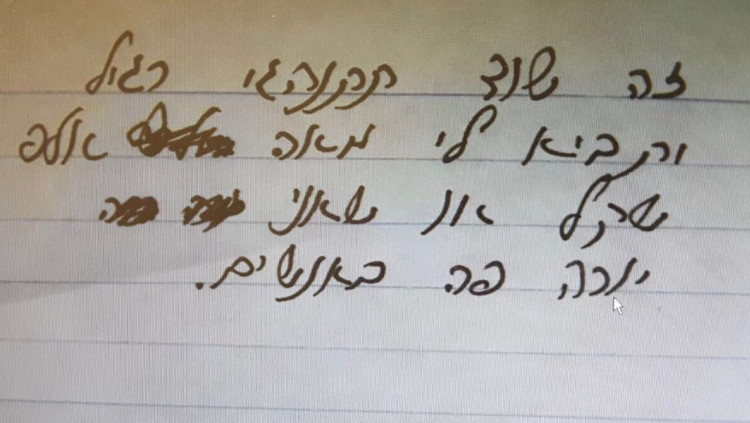 זה שוד תתנהגי רגיל
ותביא לי מאה אלף
שקל או שאני
יורה פה באנשים.